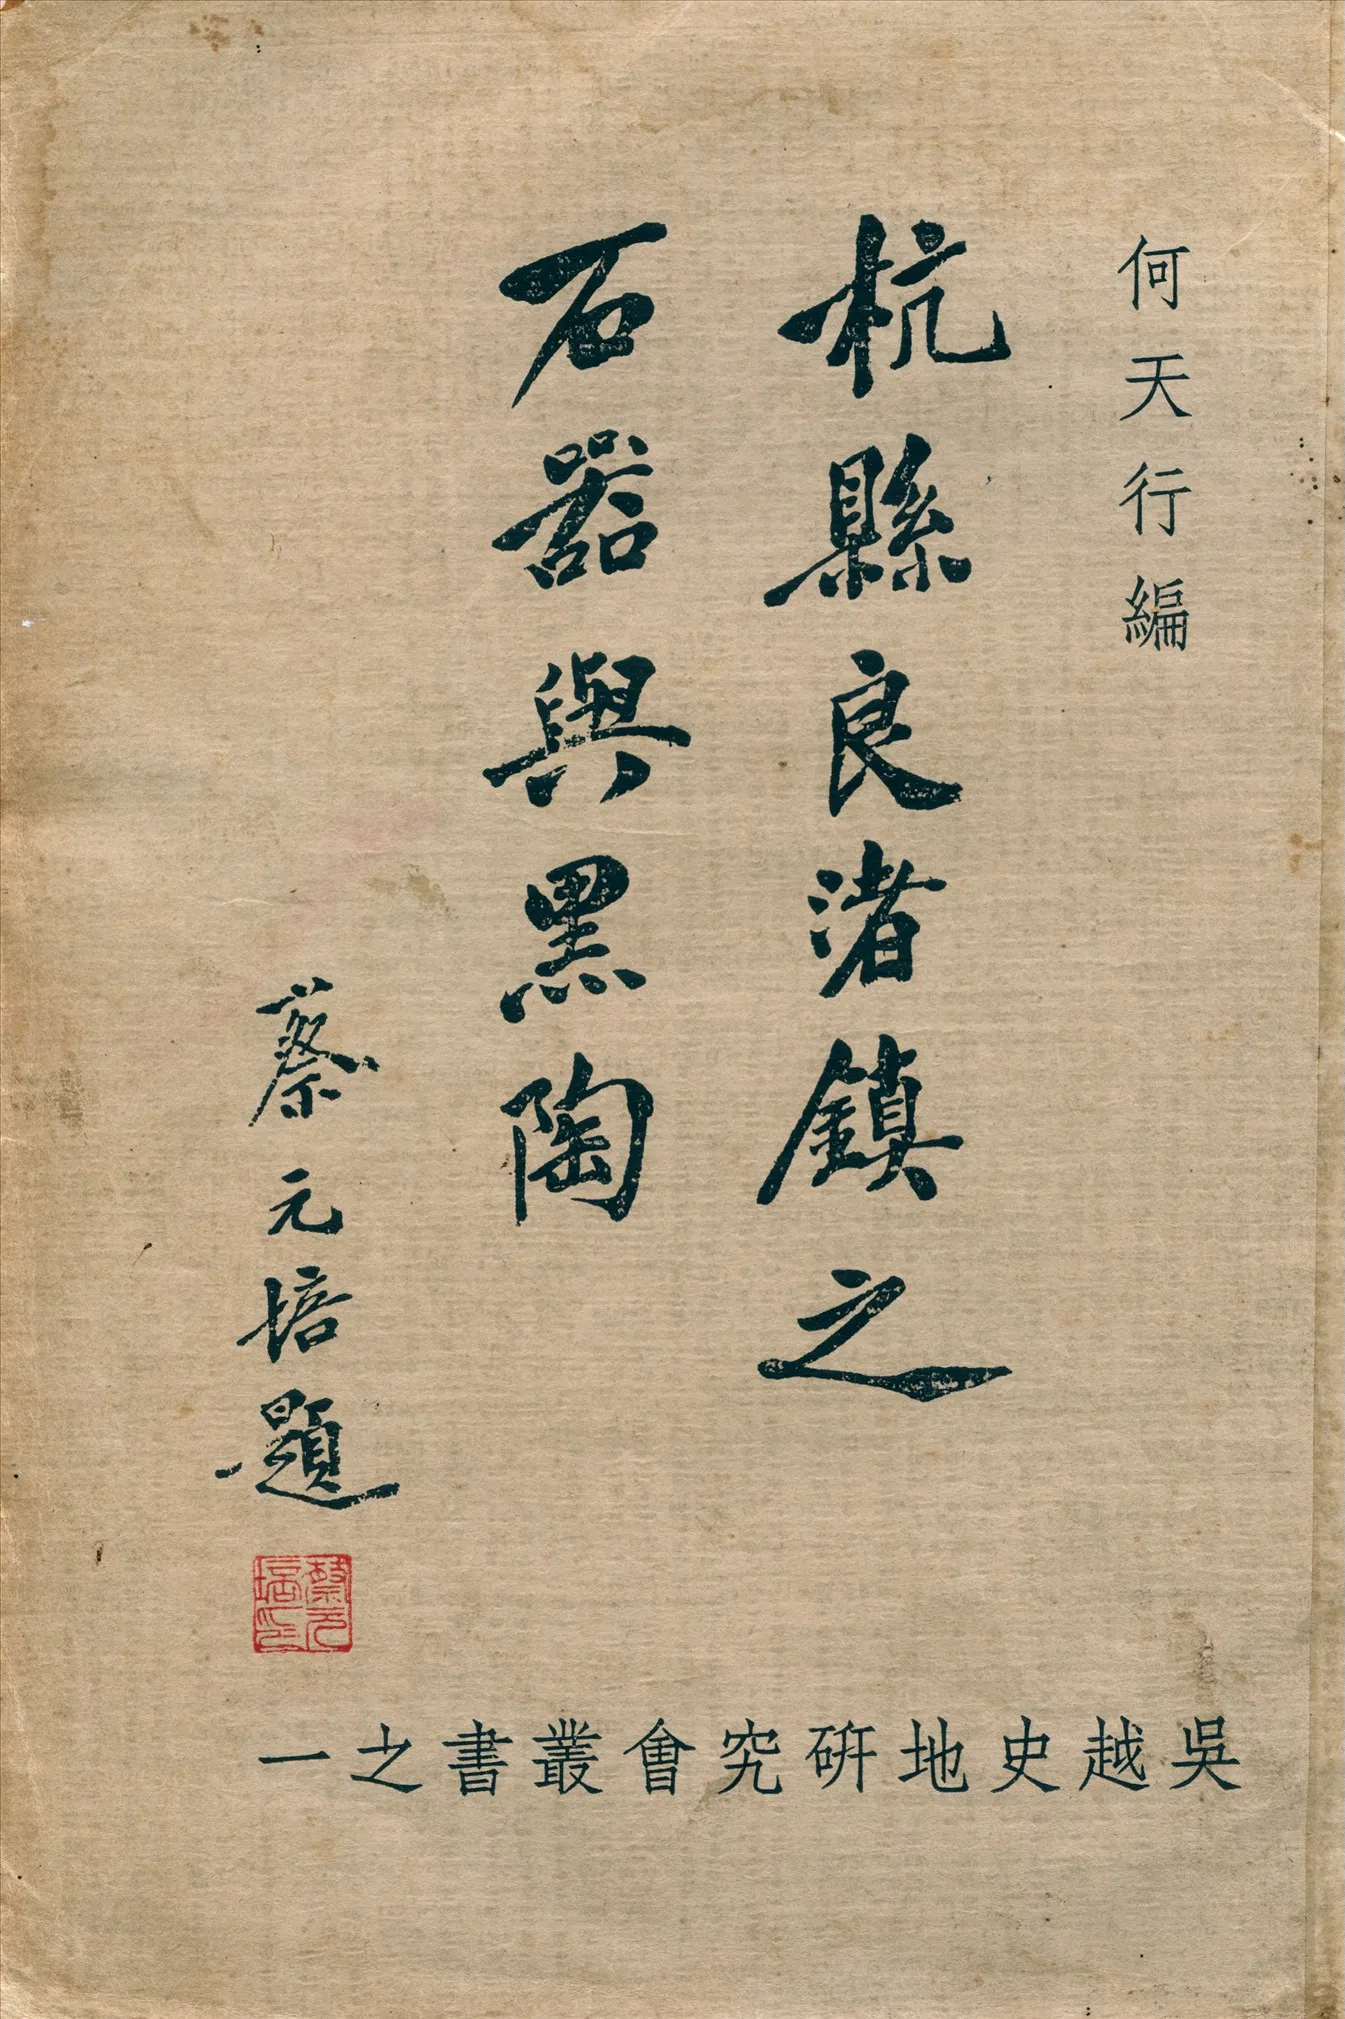 何天行編
杭縣良渚鎮之
石器與黑陶
蔡元培題
蔡元培印
吳越史地研究會叢書之一